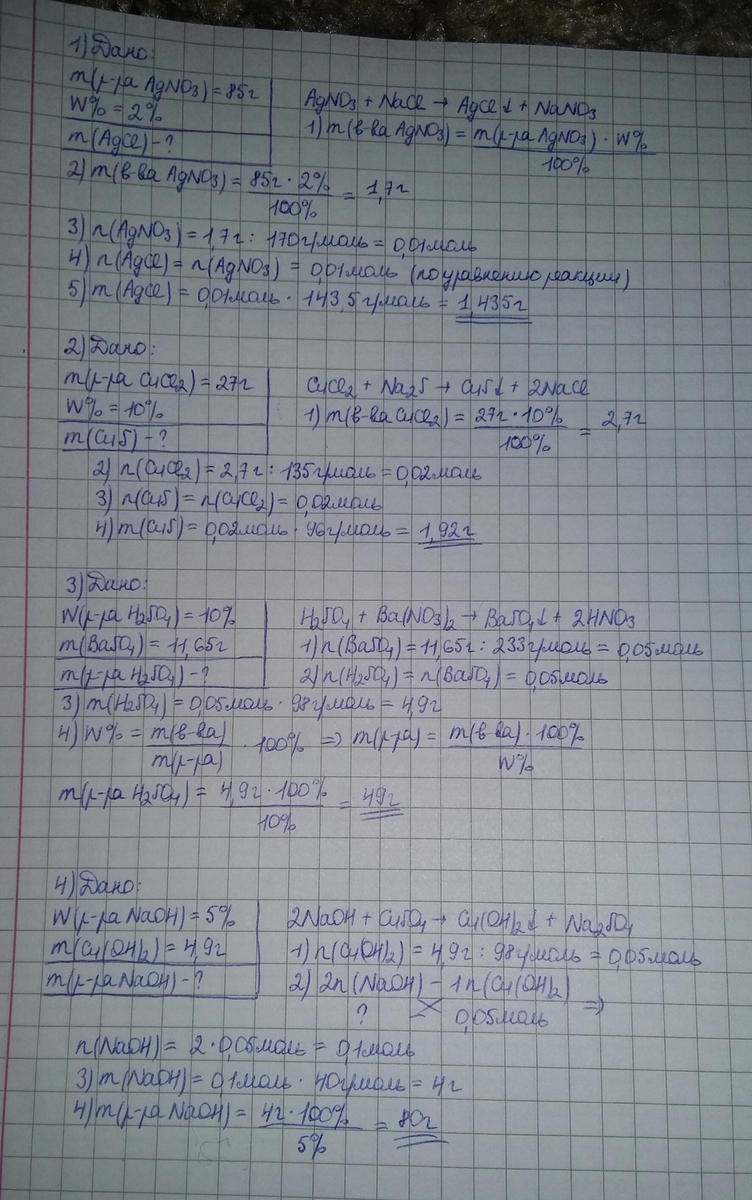 1) Дано:
m(р-ра AgNO3) = 85г
W% = 2%
m(AgCl) - ?
AgNO3 + NaCl → AgCl↓ + NaNO3
1) m(в-ва AgNO3) = m(р-ра AgNO3) · W%
100%
2) m(в-ва AgNO3) = 85г · 2% = 1,7г
100%
3) n(AgNO3) = 1,7г : 170г/моль = 0,01моль
4) n(AgCl) = n(AgNO3) = 0,01моль (по уравнению реакции)
5) m(AgCl) = 0,01моль · 143,5г/моль = 1,435г
2) Дано:
m(р-ра CuCl2) = 27г
W% = 10%
m(CuS) - ?
CuCl2 + Na2S → CuS↓ + 2NaCl
1) m(в-ва CuCl2) = 27г · 10% = 2,7г
100%
2) n(CuCl2) = 2,7г : 135г/моль = 0,02моль
3) n(CuS) = n(CuCl2) = 0,02моль
4) m(CuS) = 0,02моль · 96г/моль = 1,92г
3) Дано:
W(р-ра H2SO4) = 10%
m(BaSO4) = 11,65г
m(р-ра H2SO4) - ?
H2SO4 + Ba(NO3)2 → BaSO4↓ + 2HNO3
1) n(BaSO4) = 11,65г : 233г/моль = 0,05моль
2) n(H2SO4) = n(BaSO4) = 0,05моль
3) m(H2SO4) = 0,05моль · 98г/моль = 4,9г
4) W% = m(в-ва) · 100% ⇒ m(р-ра) = m(в-ва) · 100%
m(р-ра) W%
m(р-ра H2SO4) = 4,9г · 100% = 49г
10%
4) Дано:
W(р-ра NaOH) = 5%
m(Cu(OH)2) = 4,9г
m(р-ра NaOH) - ?
2NaOH + CuSO4 → Cu(OH)2↓ + Na2SO4
1) n(Cu(OH)2) = 4,9г : 98г/моль = 0,05моль
2) 2n(NaOH) - 1n(Cu(OH)2)
? 0,05моль ⇒
n(NaOH) = 2 · 0,05моль = 0,1моль
3) m(NaOH) = 0,1моль · 40г/моль = 4г
4) m(р-ра NaOH) = 4г · 100% = 80г
5%